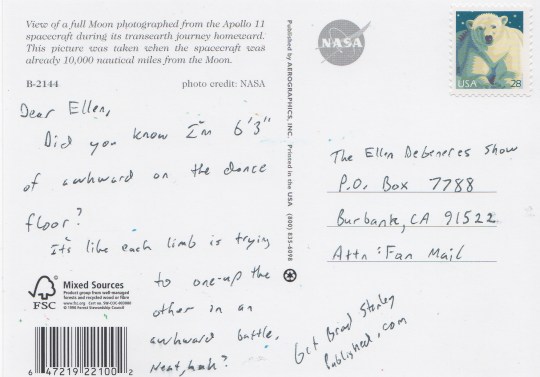 View of a full Moon photographed from the Apollo 11
spacecraft during its transearth journey homeward.
This picture was taken when the spacecraft was
already 10,000 nautical miles from the Moon.
B-2144
photo credit: NASA
Dear Ellen,
Did you know I'm 6'3"
of awkward on the dance
floor?
It's like each limb is trying
to one-up the
other in an
awkward battle.
Neat, huh?
FSC
Mixed Sources
Product group from well-managed
forests and recycled wood or fibre
www.fsc.org
© 1996 Forest Stewardship Council
6 47219 22100 2
Published by AEROGRAPHICS, INC. Printed in the USA (800) 835-6098
NASA
USA 28
The Ellen Degeneres Show
P.O. Box 7788
Burbank, CA 91522
Attn: Fan Mail
Get Brad Stanley
Published.com